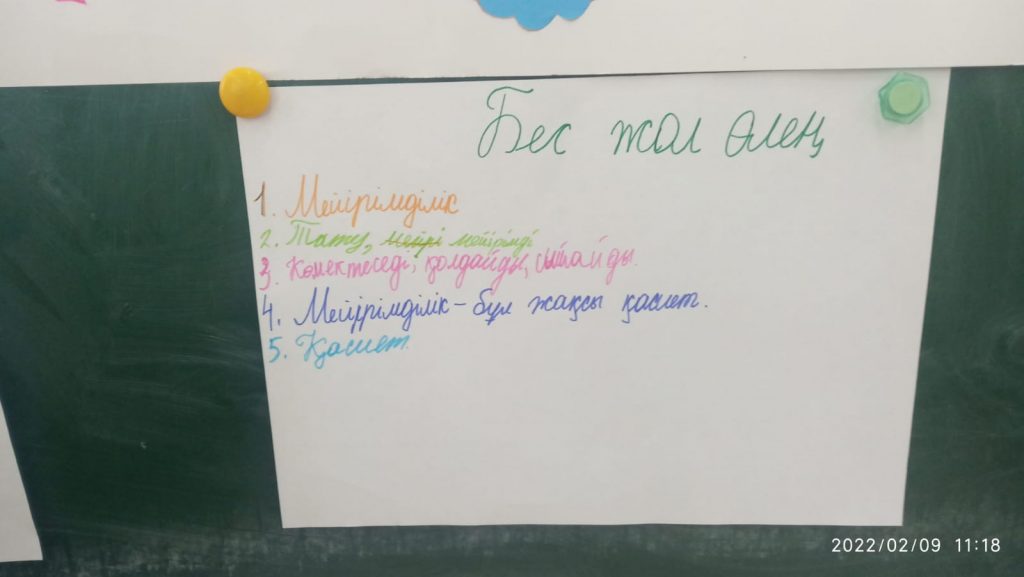 Бес жол өлең
1. Мейірімділік
2. Тату, мейрі мейірімді
3. Көмектеседі, қолдайды, сыйлайды.
4. Мейірімділік – бұл жақсы қасиет.
5. Қасиет.
2022/02/09 11:18